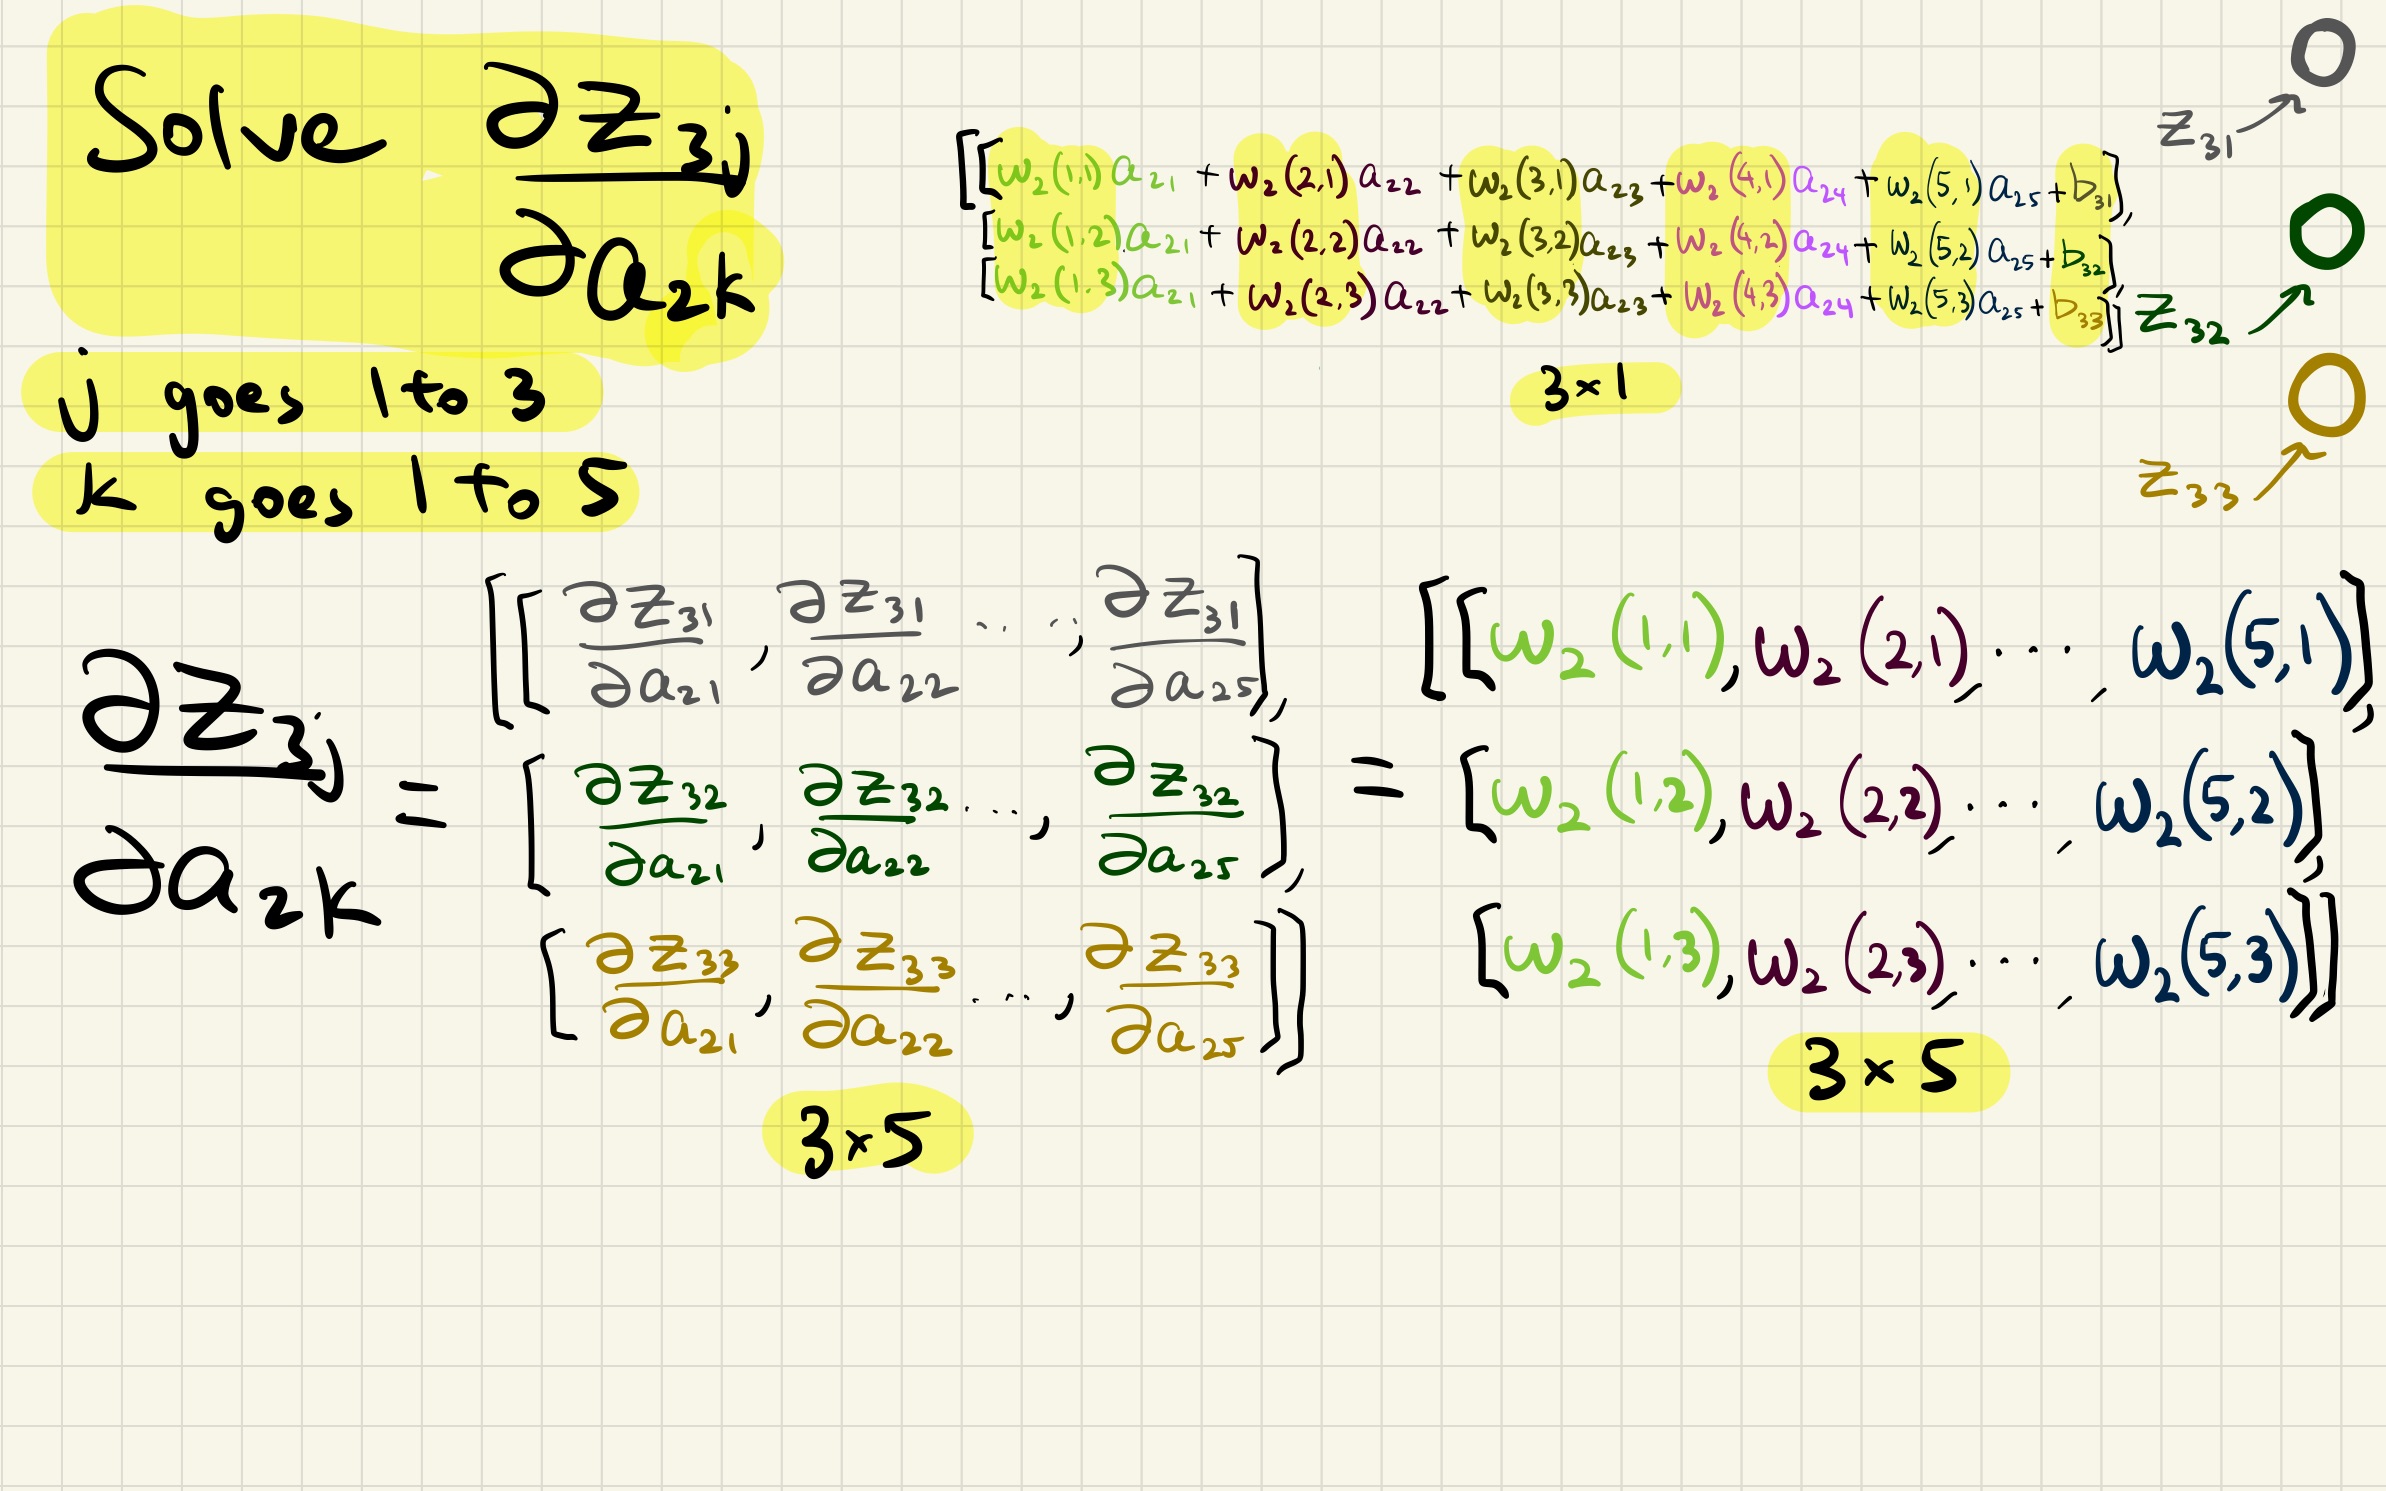 Solve ∂z₃ⱼ / ∂a₂ₖ
j goes 1 to 3
k goes 1 to 5
[[w₂(1,1)a₂₁ + w₂(2,1)a₂₂ + w₂(3,1)a₂₃ + w₂(4,1)a₂₄ + w₂(5,1)a₂₅ + b₃₁],
[w₂(1,2)a₂₁ + w₂(2,2)a₂₂ + w₂(3,2)a₂₃ + w₂(4,2)a₂₄ + w₂(5,2)a₂₅ + b₃₂],
[w₂(1,3)a₂₁ + w₂(2,3)a₂₂ + w₂(3,3)a₂₃ + w₂(4,3)a₂₄ + w₂(5,3)a₂₅ + b₃₃]]
3×1
z₃₁
z₃₂
z₃₃
∂z₃ⱼ / ∂a₂ₖ =
[[∂z₃₁/∂a₂₁, ∂z₃₁/∂a₂₂ ...., ∂z₃₁/∂a₂₅],
[∂z₃₂/∂a₂₁, ∂z₃₂/∂a₂₂ ...., ∂z₃₂/∂a₂₅],
[∂z₃₃/∂a₂₁, ∂z₃₃/∂a₂₂ ...., ∂z₃₃/∂a₂₅]]
3×5
=
[[w₂(1,1), w₂(2,1), ...., w₂(5,1)],
[w₂(1,2), w₂(2,2), ..., w₂(5,2)],
[w₂(1,3), w₂(2,3), ..., w₂(5,3)]]
3×5